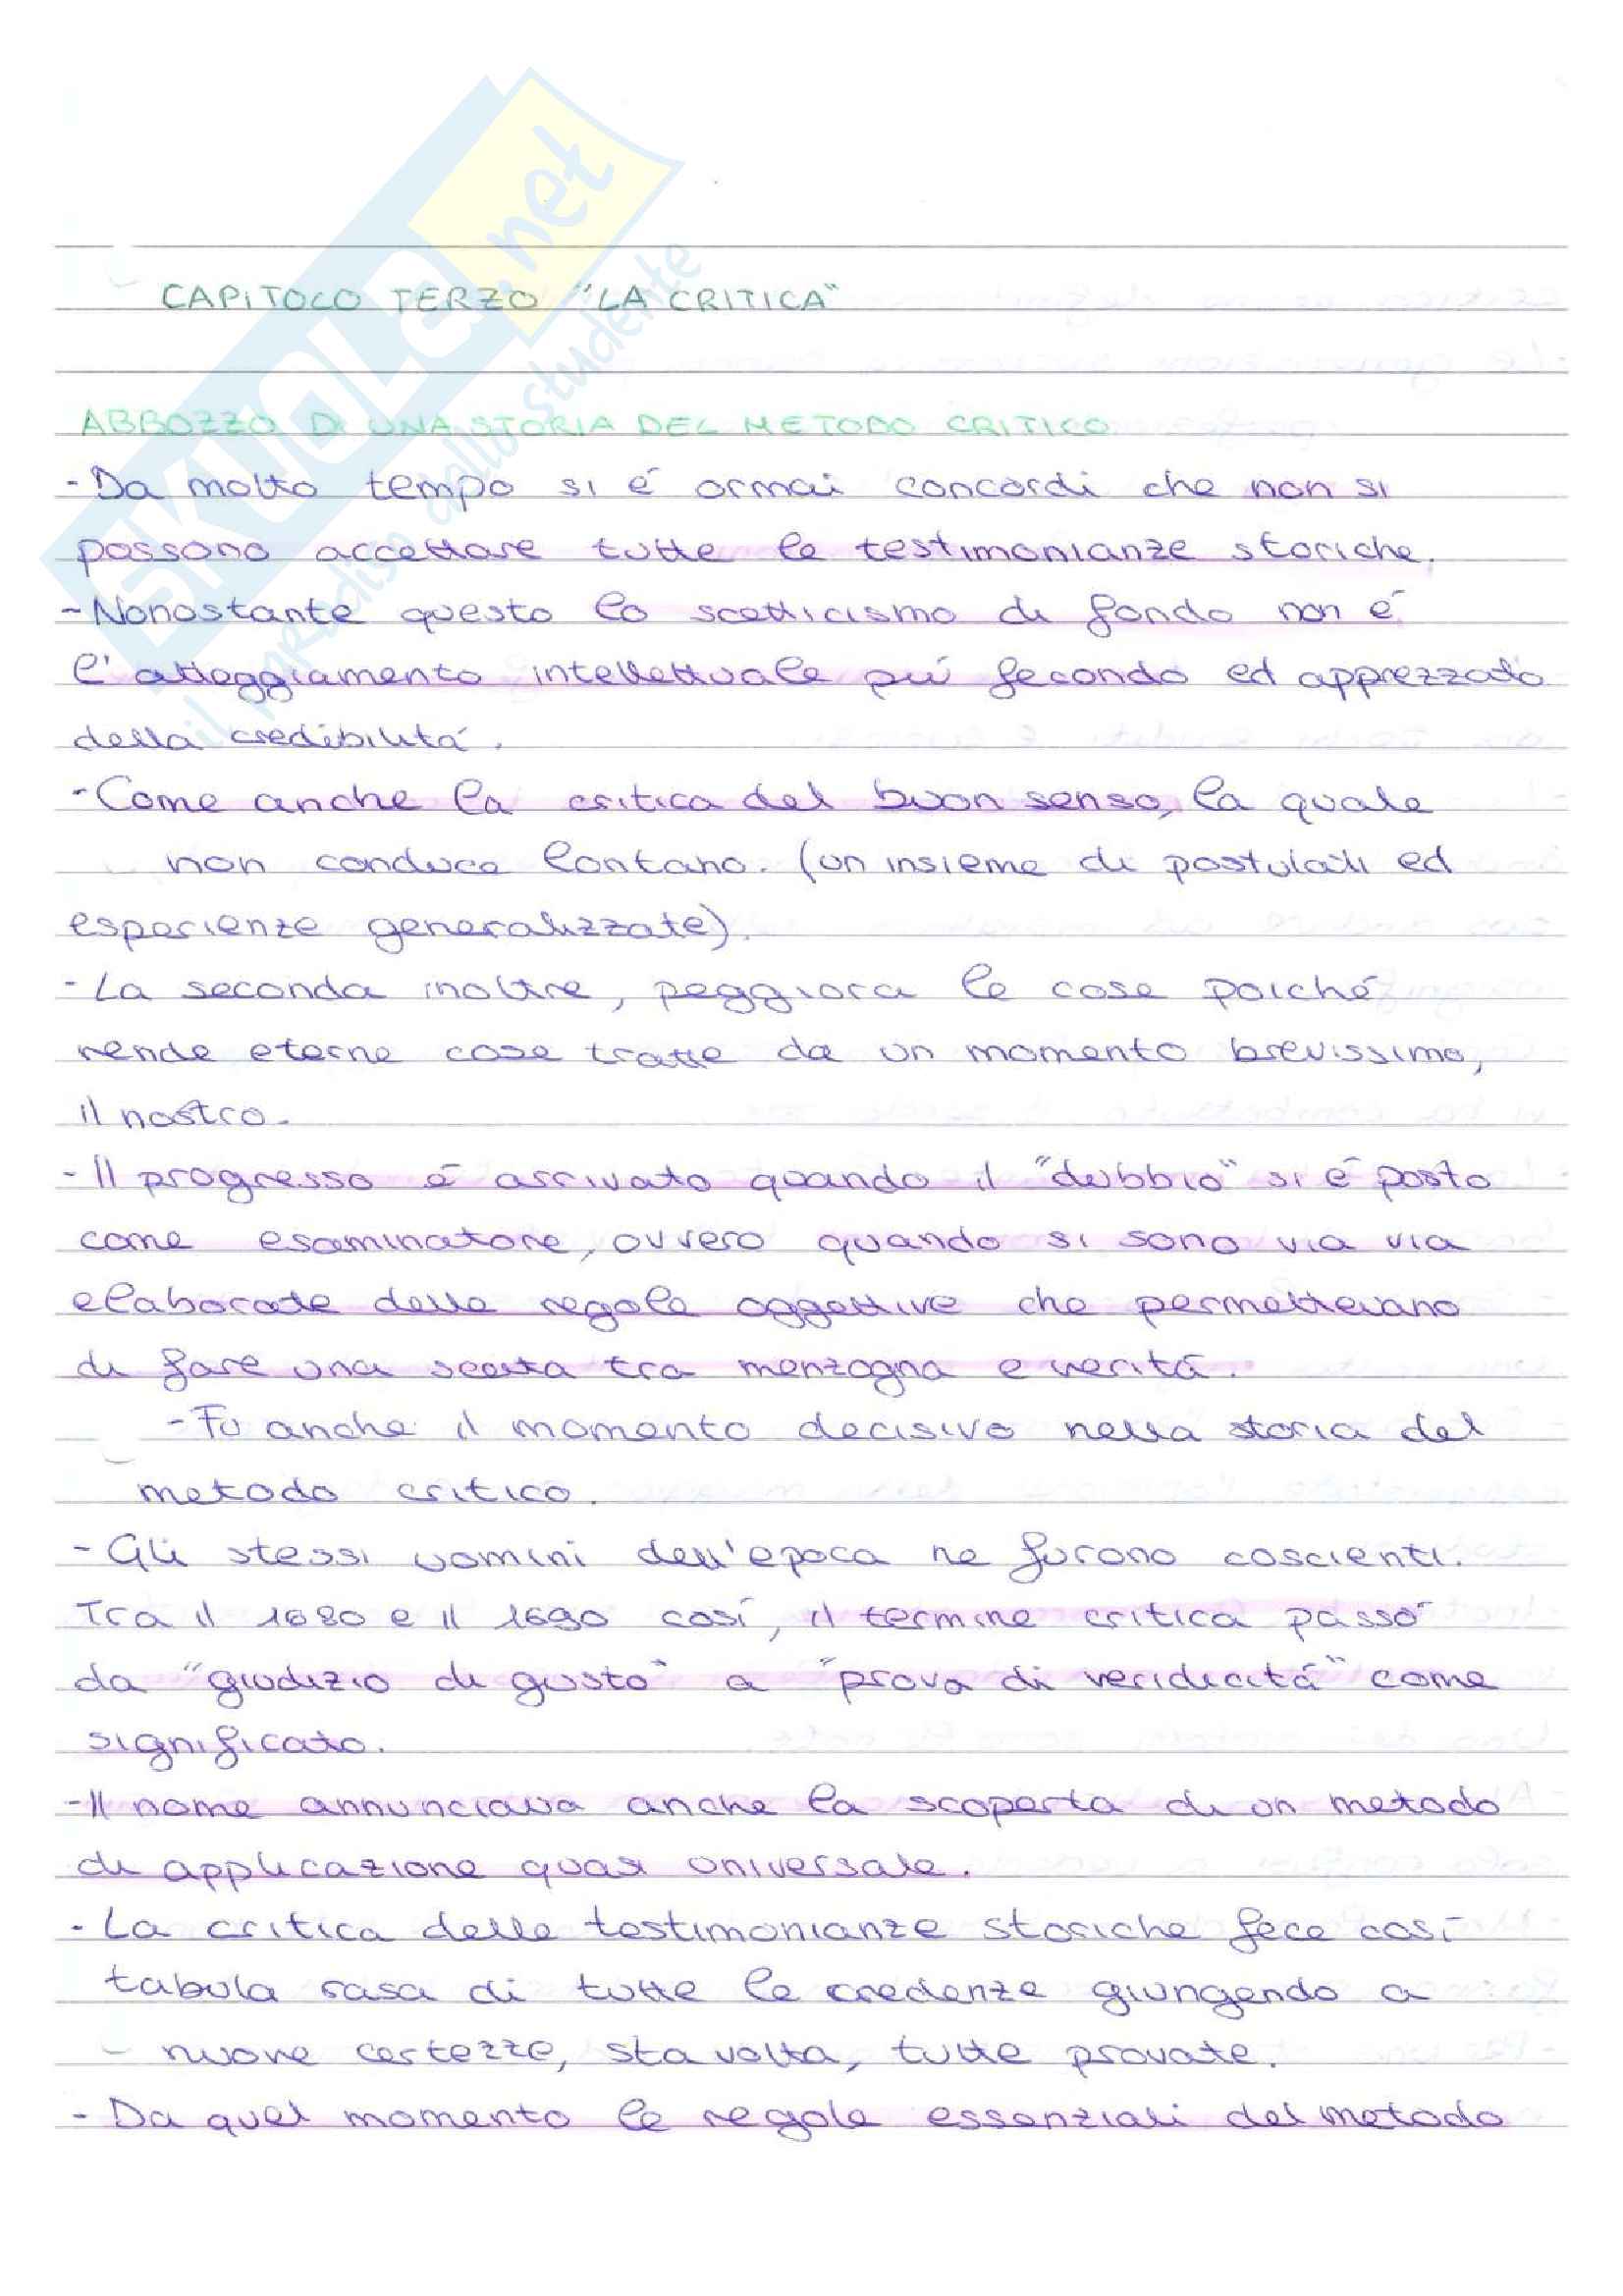 SKUOLA.net
il paradiso dello studente
CAPITOLO TERZO "LA CRITICA"
ABBOZZO DI UNA STORIA DEL METODO CRITICO
- Da molto tempo si é ormai concordi che non si
possono accettare tutte le testimonianze storiche.
- Nonostante questo lo scetticismo di fondo non é
l'atteggiamento intellettuale piú fecondo ed apprezzato
della credibilitá.
- Come anche la critica del buon senso, la quale
non conduce lontano. (un insieme di postulati ed
esperienze generalizzate).
- La seconda inoltre, peggiora le cose poiché
rende eterne cose tratte da un momento brevissimo,
il nostro.
- Il progresso é arrivato quando il "dubbio" si é posto
come esaminatore, ovvero quando si sono via via
elaborate delle regole oggettive che permettevano
di fare una scelta tra menzogna e veritá.
- Fu anche il momento decisivo nella storia del
metodo critico.
- Gli stessi uomini dell'epoca ne furono coscienti.
Tra il 1680 e il 1690 cosí, il termine critica passó
da "giudizio di gusto" a "prova di veridicitá" come
significato.
- Il nome annunciava anche la scoperta di un metodo
di applicazione quasi universale.
- La critica delle testimonianze storiche fece cosí
tabula rasa di tutte le credenze giungendo a
nuove certezze, sta volta, tutte provate.
- Da quel momento le regole essenziali del metodo